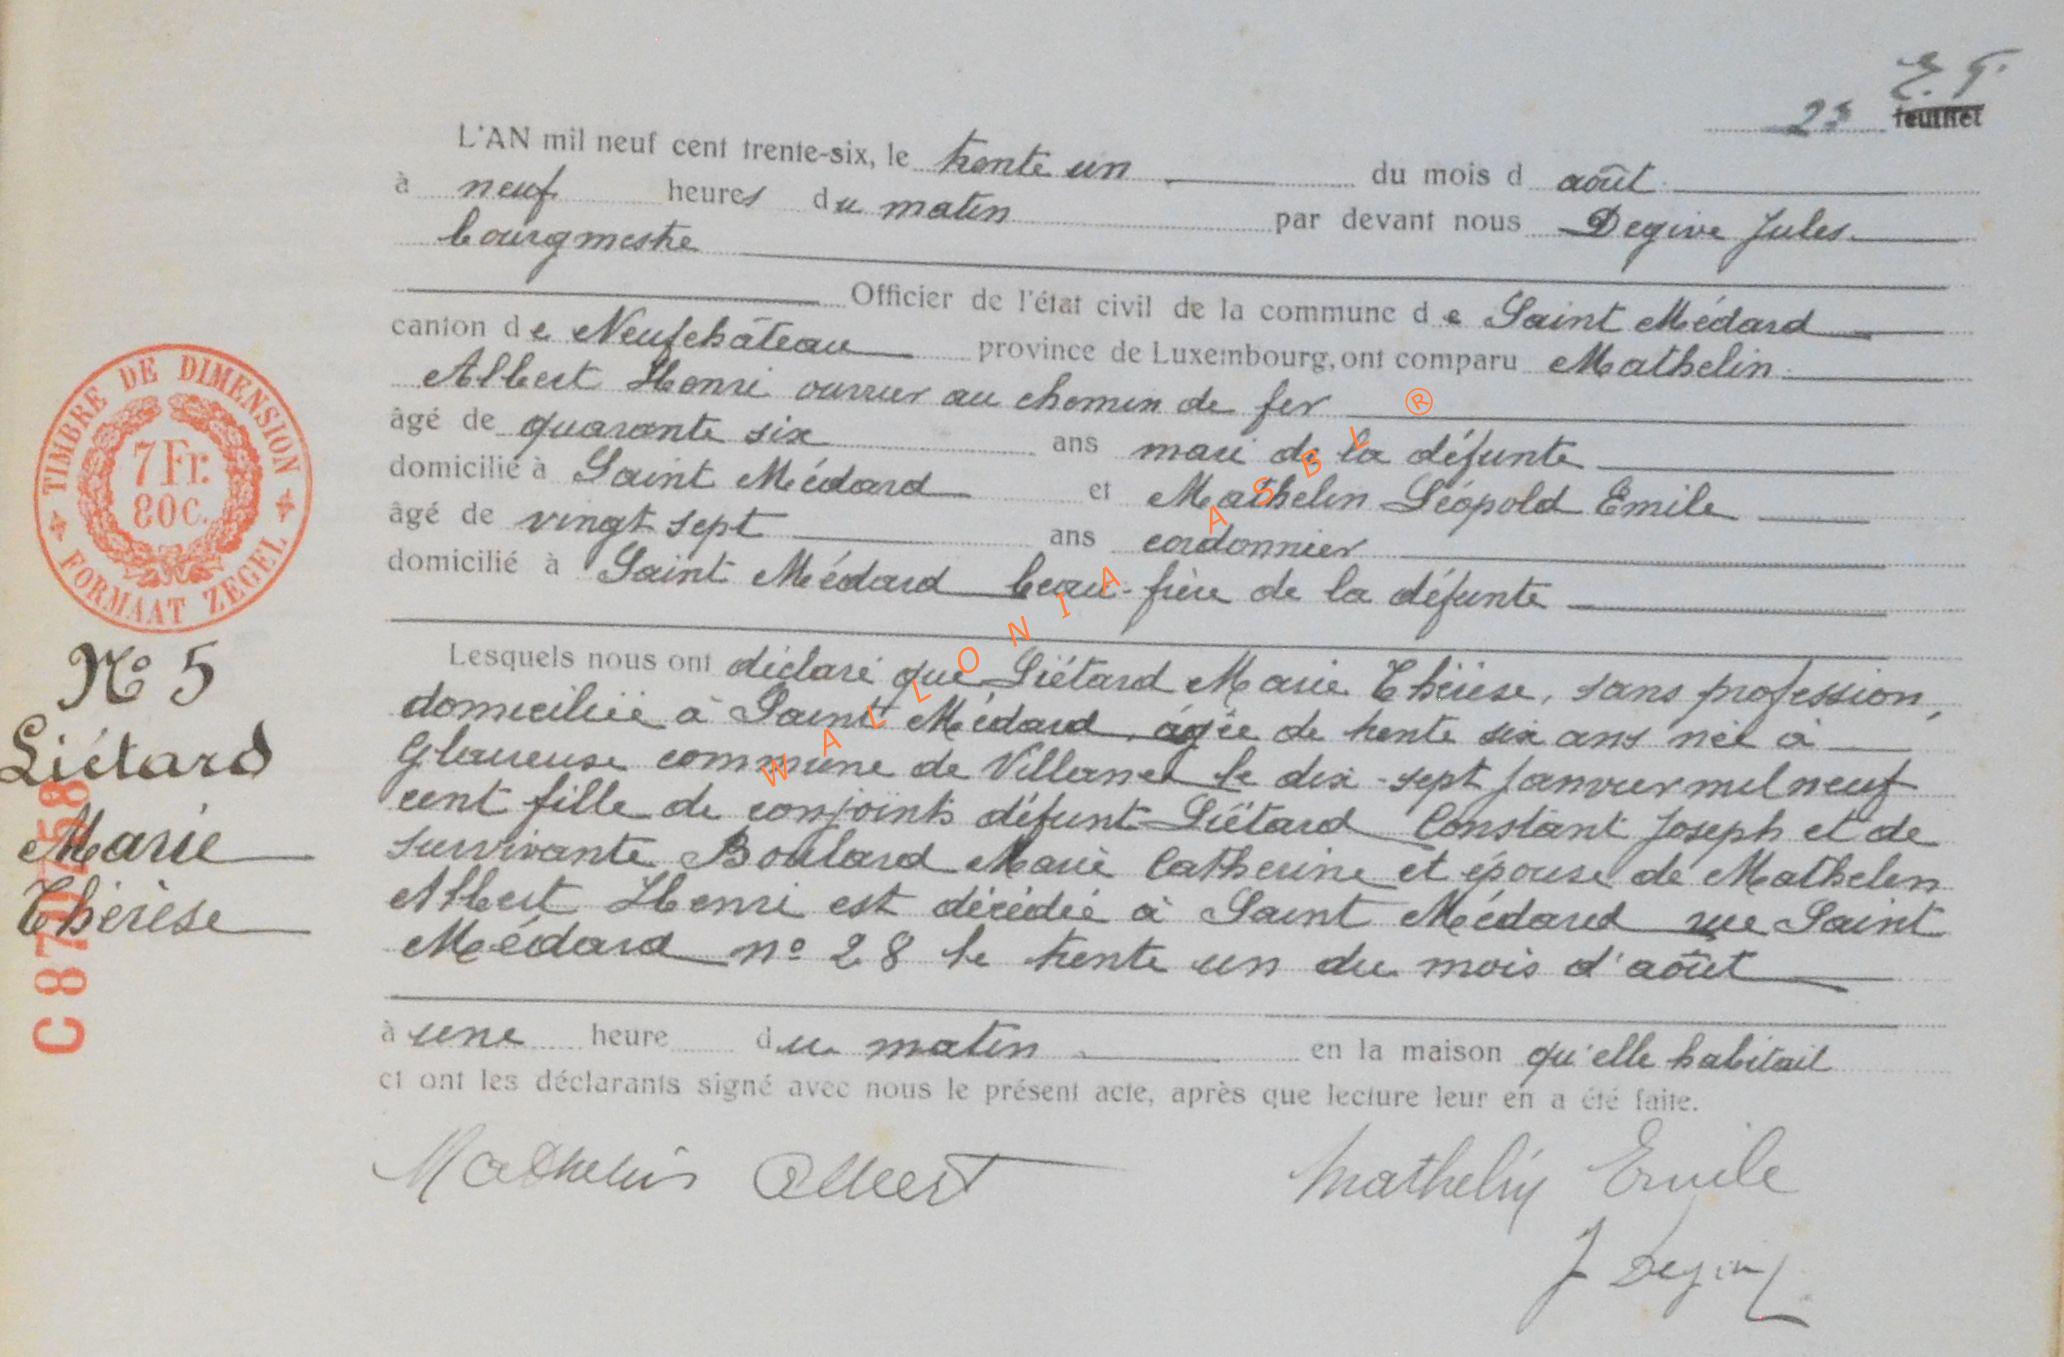 E. G.
23 feuillet
L'AN mil neuf cent trente-six, le trente un du mois d août
à neuf heures du matin par devant nous Degive Jules
bourgmestre
Officier de l'état civil de la commune de Saint Médard
canton de Neufchâteau province de Luxembourg, ont comparu Mathelin
Albert Henri ouvrier au chemin de fer
âgé de quarante six ans mari de la défunte
domicilié à Saint Médard et Mathelin Léopold Emile
âgé de vingt sept ans cordonnier
domicilié à Saint Médard beau-frère de la défunte
Lesquels nous ont déclaré que Liétard Marie Thérèse, sans profession,
domiciliée à Saint Médard, âgée de trente six ans née à
Glaireuse commune de Villance le dix-sept Janvier mil neuf
cent fille de conjoints défunt Liétard Constant Joseph et de
survivante Boulard Marie Catherine et épouse de Mathelin
Albert Henri est décédée à Saint Médard rue Saint
Médard n° 28 le trente un du mois d'août
à une heure du matin en la maison qu'elle habitait
et ont les déclarants signé avec nous le présent acte, après que lecture leur en a été faite.
Mathelin Albert
Mathelin Emile
J Degive
TIMBRE DE DIMENSION
7 Fr.
80 c.
FORMAAT ZEGEL
N° 5
Liétard
Marie
Thérèse
C870758
WALLONIA ASBL ®